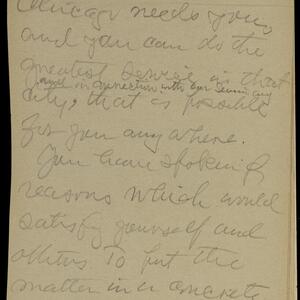 Chicago needs you,
and you can do the
greatest service in that
and in connection with our Seminary
city, that is possible
for you anywhere.
You have spoken of
reasons which would
satisfy yourself and
others. To put the
matter in a concrete